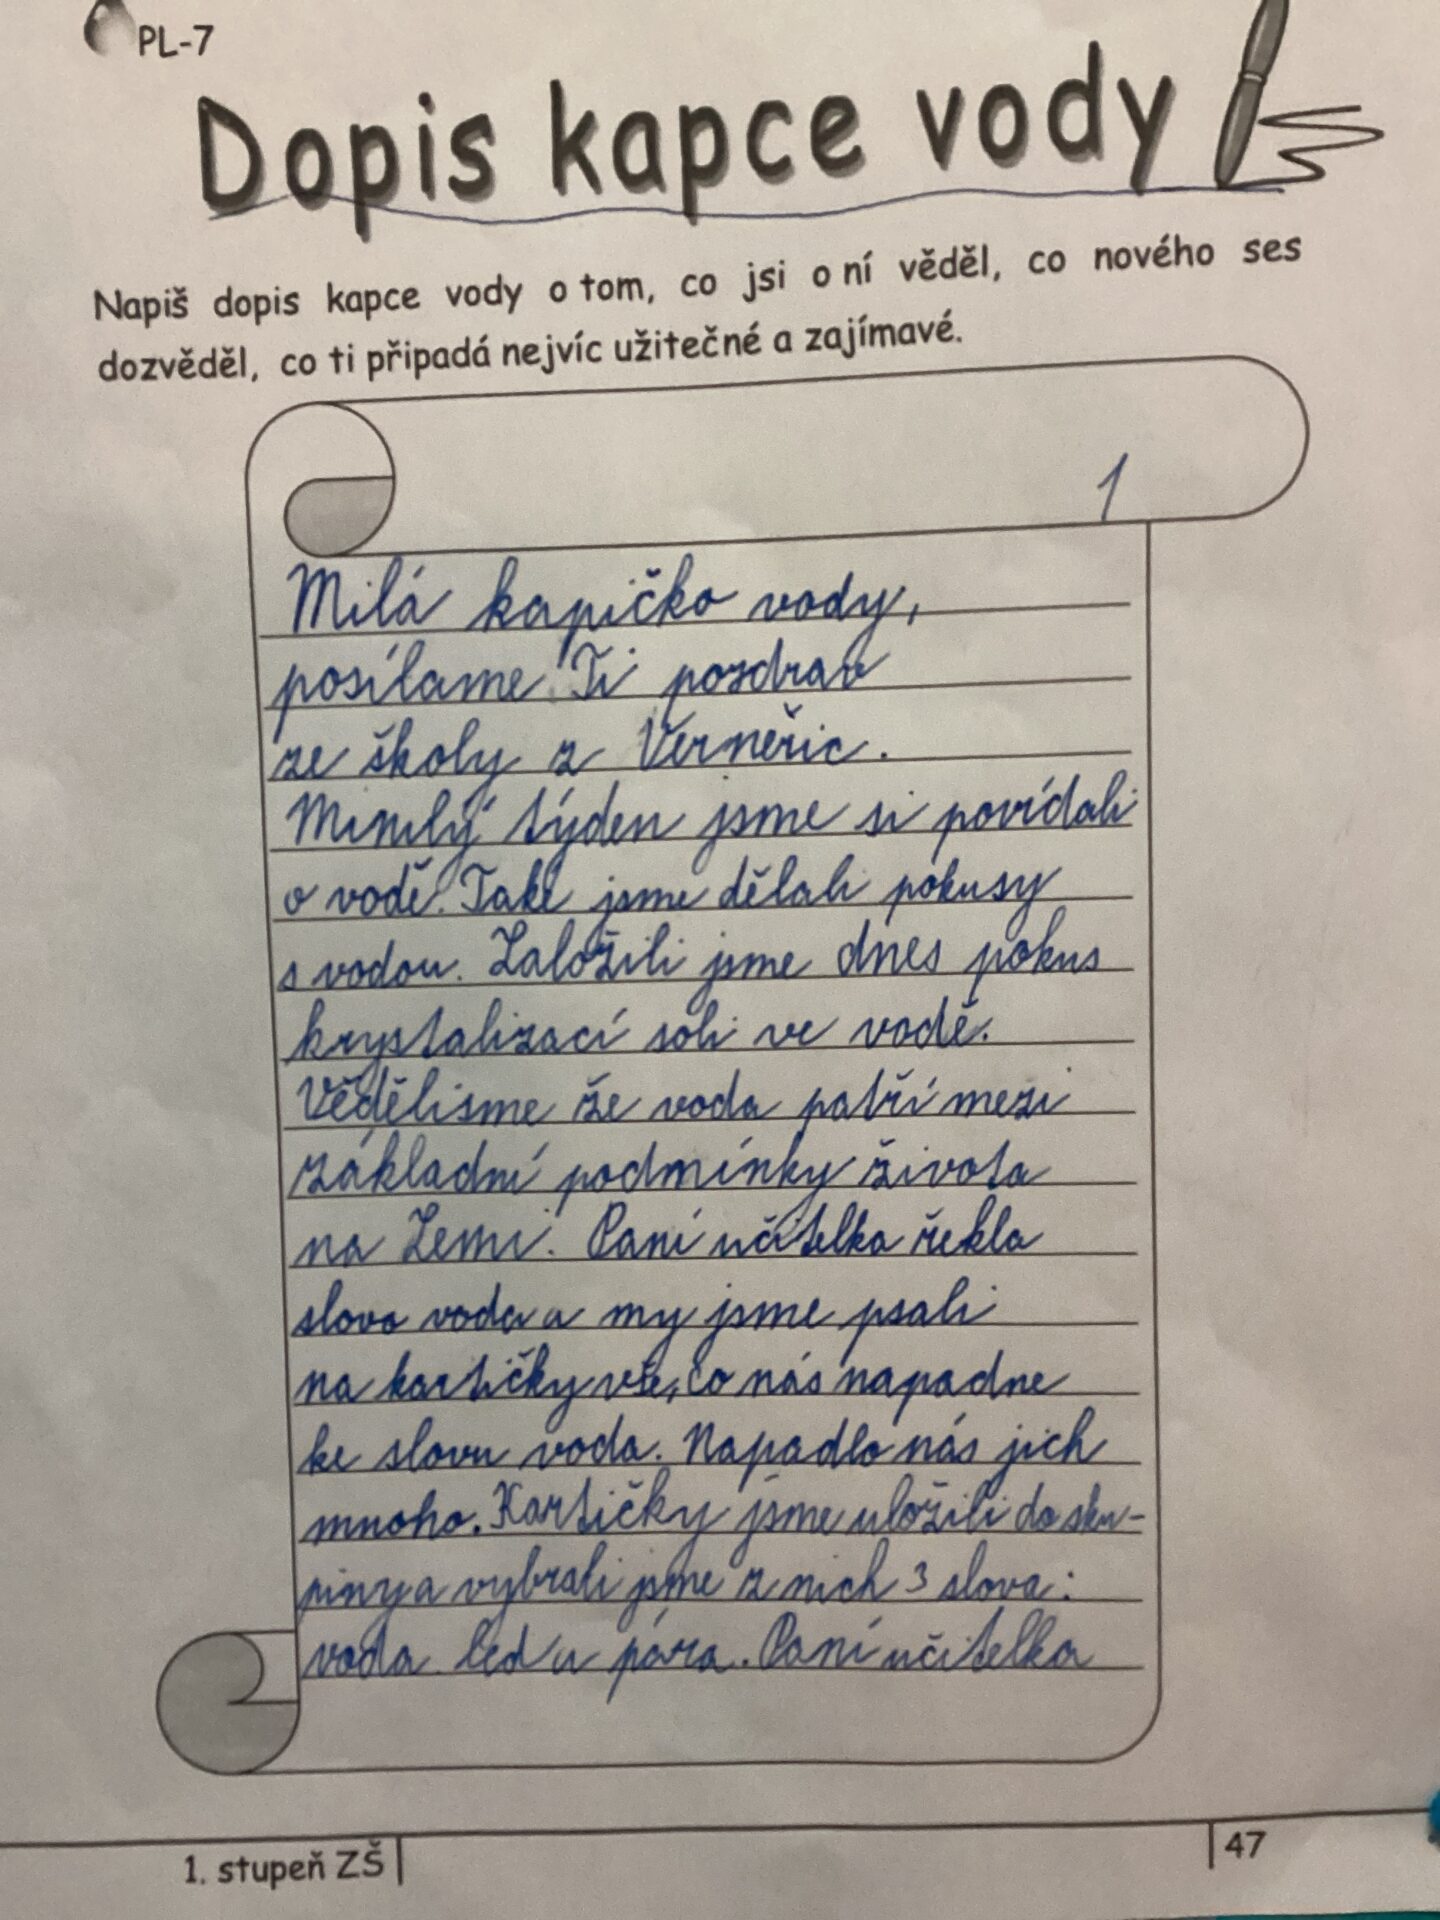 PL-7
Dopis kapce vody
Napiš dopis kapce vody o tom, co jsi o ní věděl, co nového ses
dozvěděl, co ti připadá nejvíc užitečné a zajímavé.
1
Milá kapičko vody,
posílame Ti pozdrav
ze školy z Verneřic.
Minulý týden jsme si povídali
o vodě. Také jsme dělali pokusy
s vodou. Založili jsme dnes pokus
krystalizací soli ve vodě.
Vědělisme že voda patří mezi
základní podmínky života
na Zemi. Paní učitelka řekla
slovo voda a my jsme psali
na kartičky vše, co nás napadne
ke slovu voda. Napadlo nás jich
mnoho. Kartičky jsme uložili do sku-
piny a vybrali jsme z nich 3 slova:
voda led a pára. Paní učitelka
1. stupeň ZŠ
47